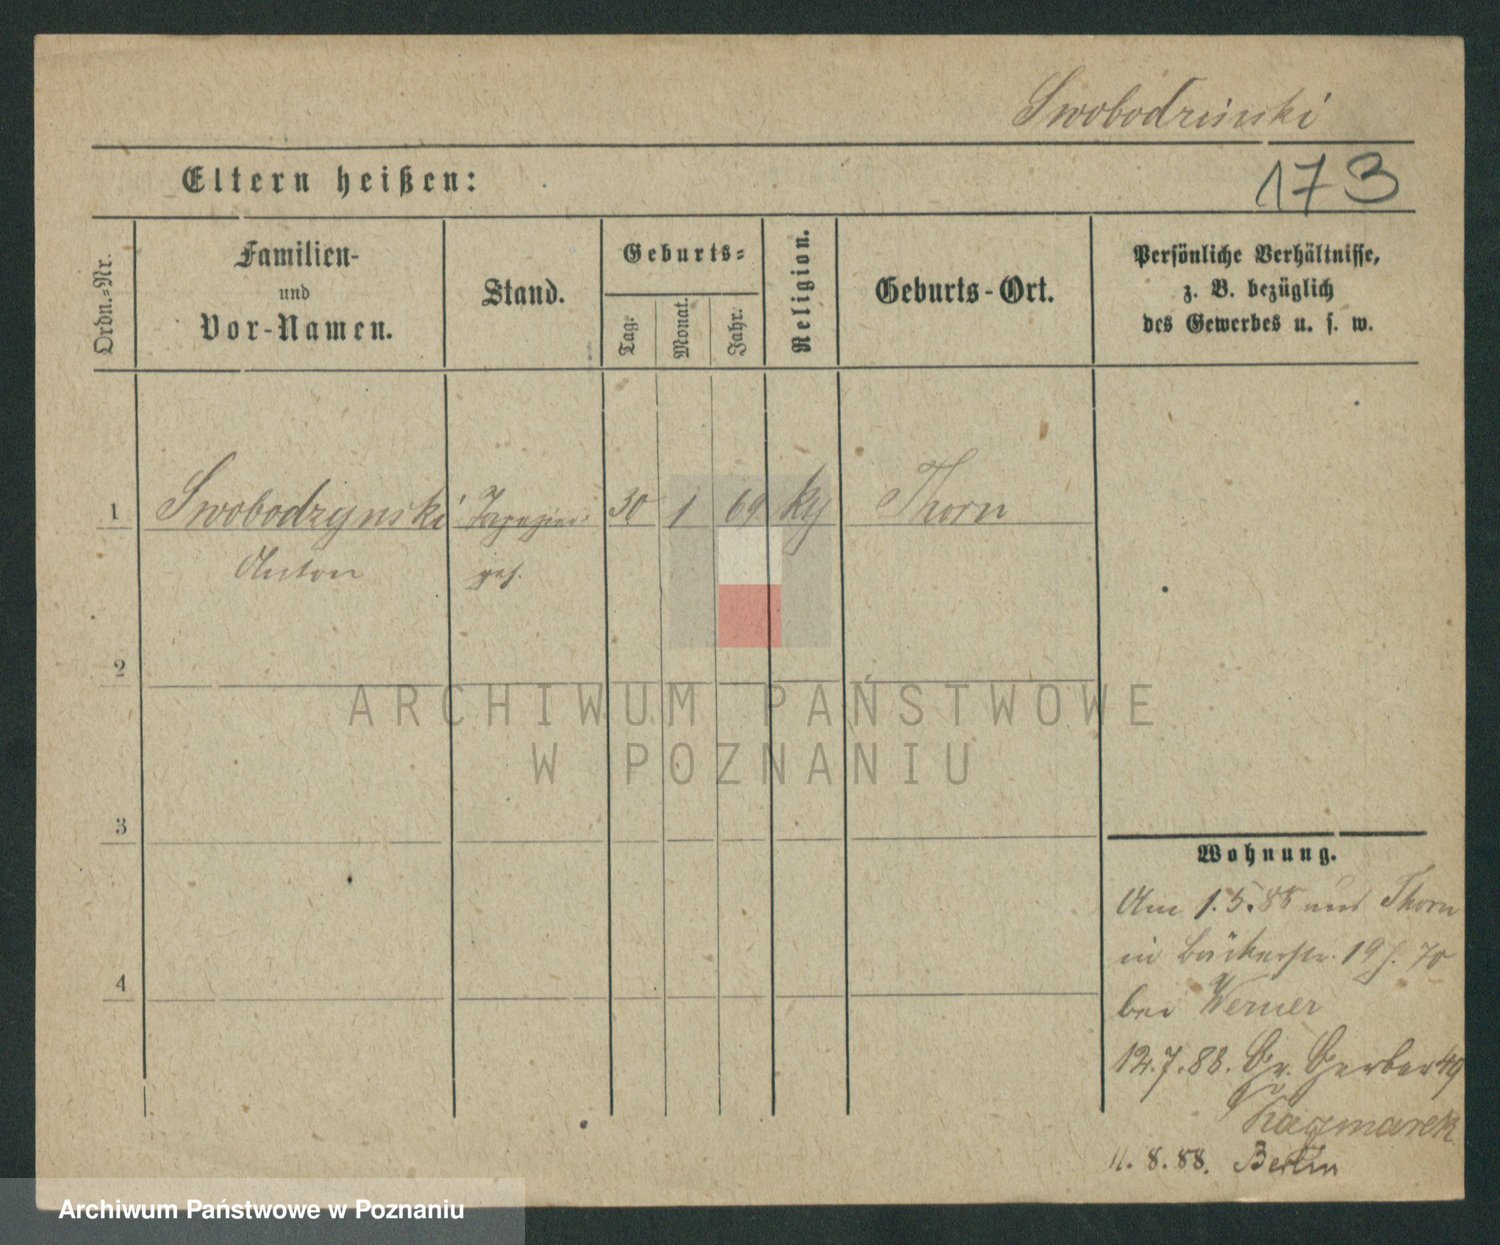 Swobodzinski
173
Eltern heißen:
Ordn.-Nr.
Familien-
und
Vor-Namen.
Stand.
Geburts-
Tag.
Monat.
Jahr.
Religion.
Geburts-Ort.
Persönliche Verhältnisse,
z. B. bezüglich
des Gewerbes u. s. w.
1 Swobodzynski 30 1 69 Thorn
Anton
2
3
4
Wohnung.
Am 1.5.88 Thorn
in Bäckerstr. 19
bei Werner
12.7.88. Gr. Gerber 49
11.8.88. Berlin
ARCHIWUM PAŃSTWOWE
W POZNANIU
Archiwum Państwowe w Poznaniu